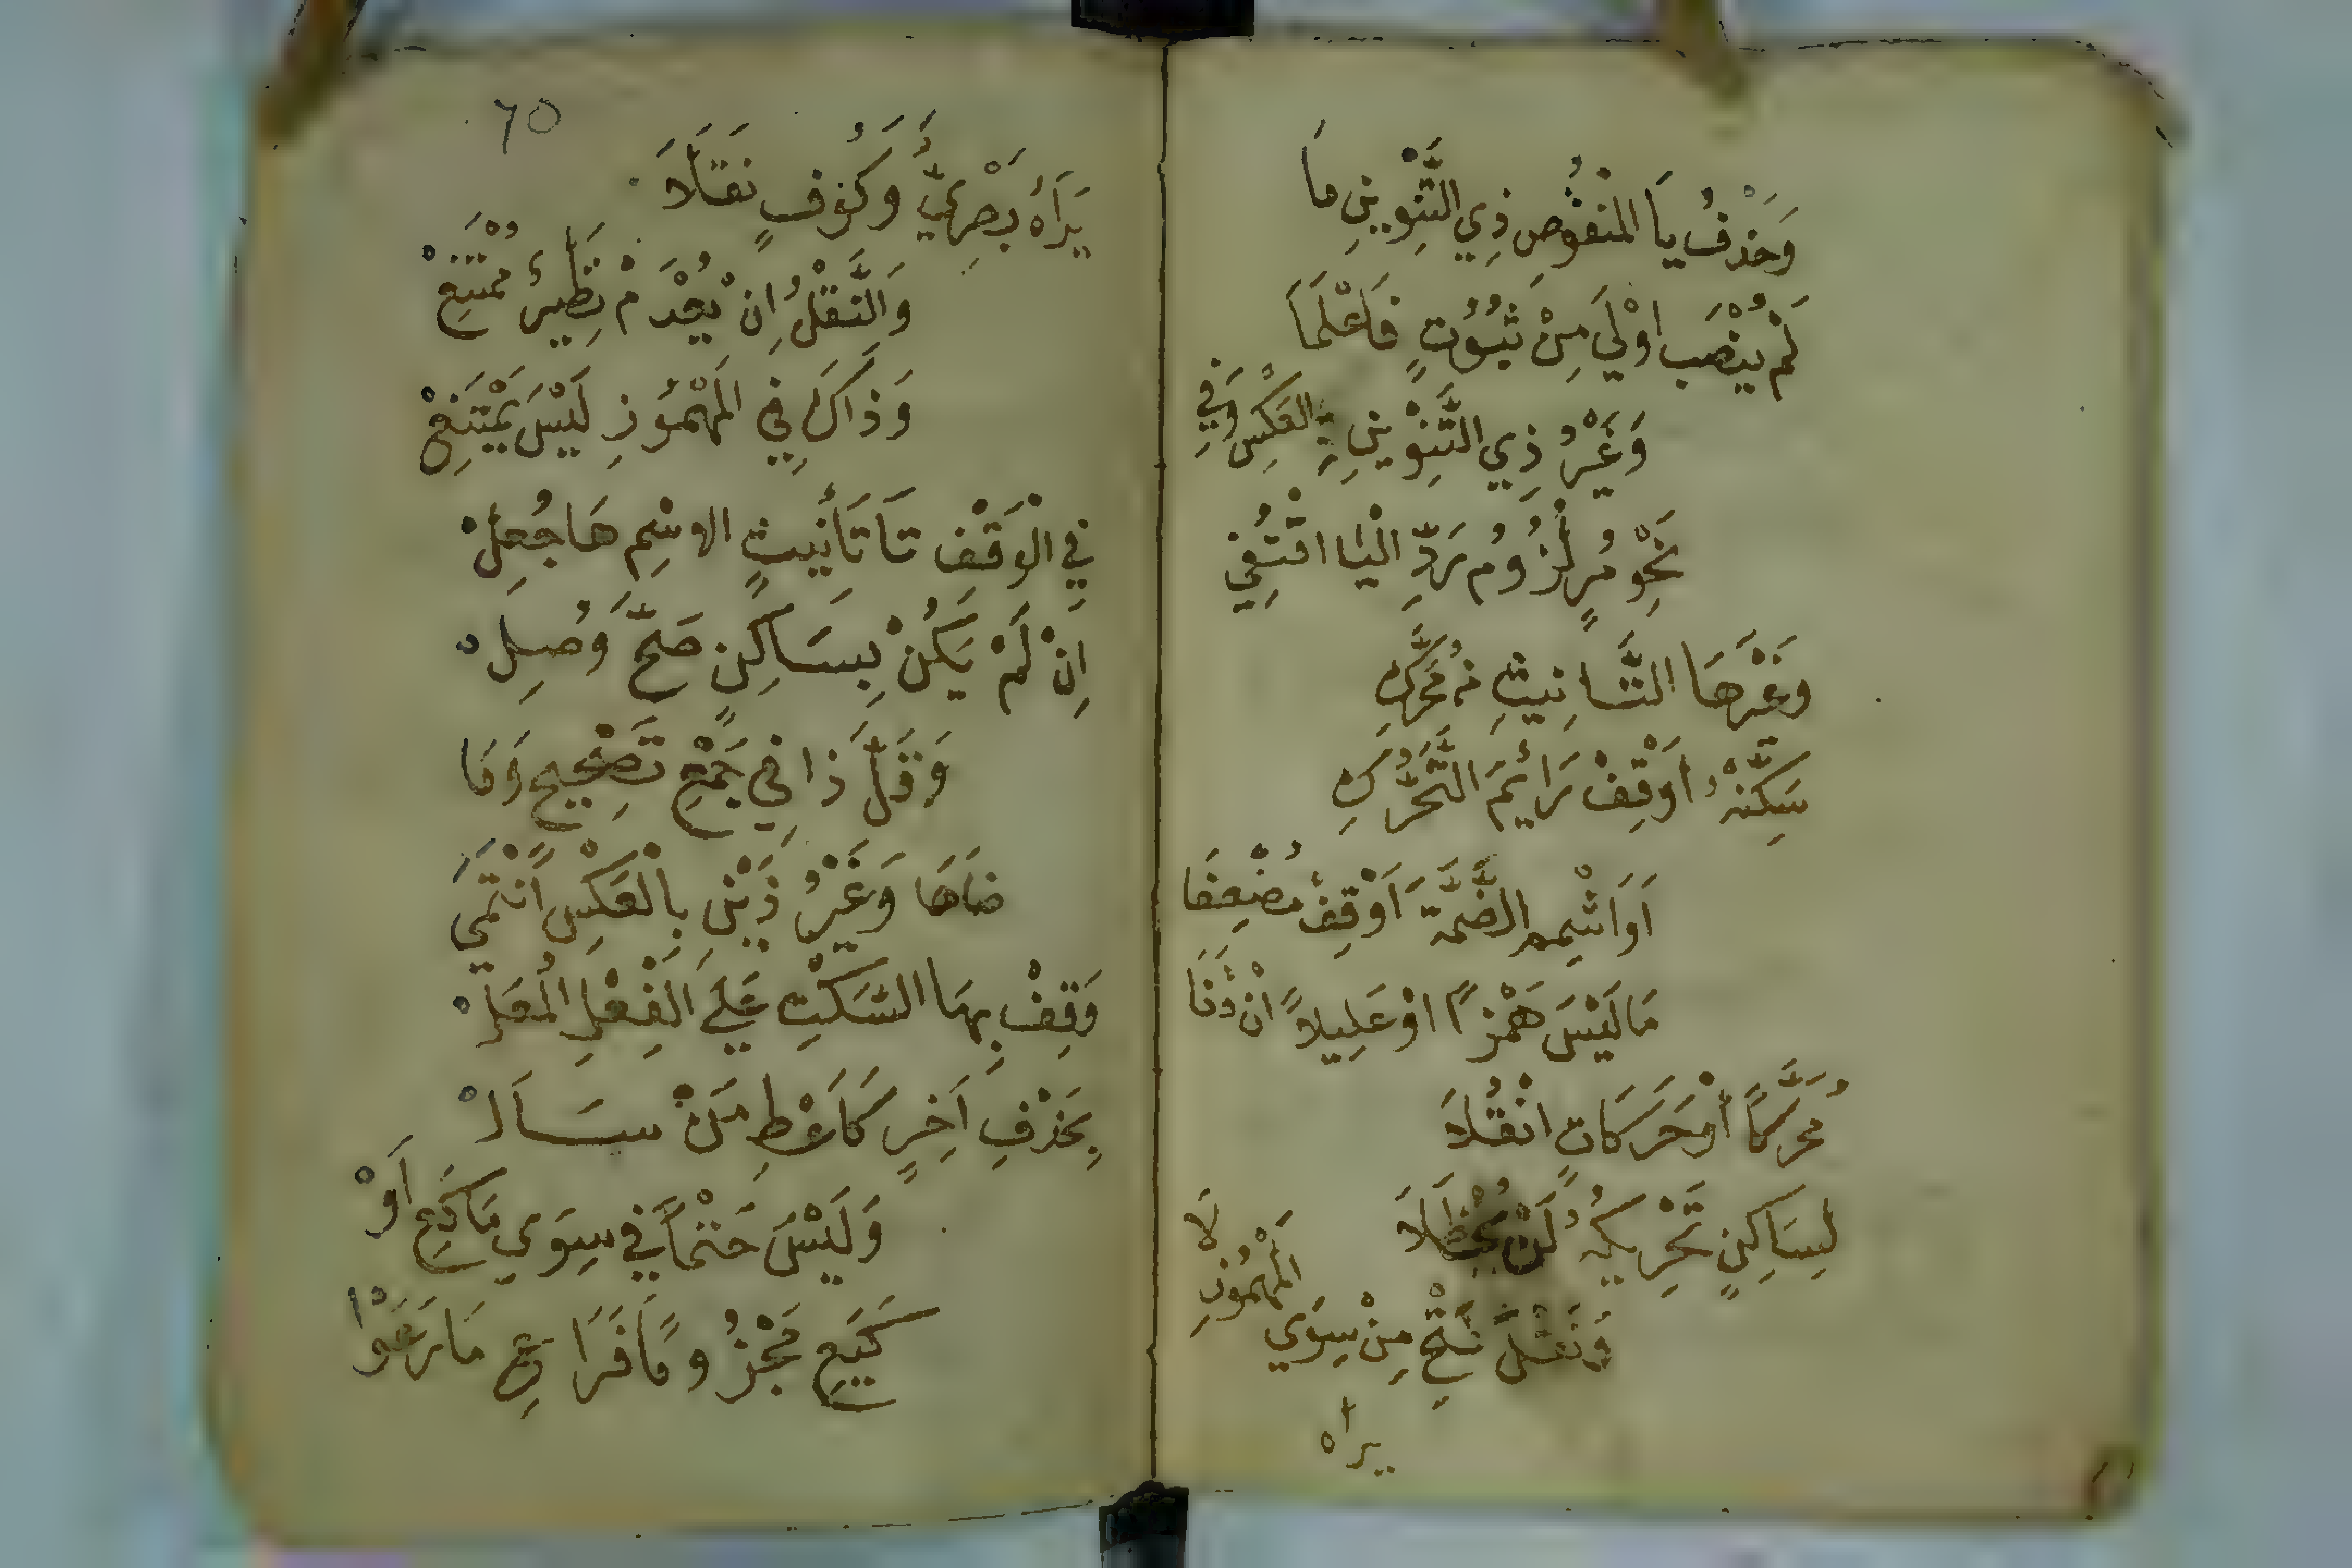 وَحَذْفُ يَا المَنْقُوصِ ذِي التَّنْوِينِ مَا
لَمْ يُنْصَب اوْلَي مِنْ ثُبُوُتٍ فَاعْلَمَا
وَغَيْرُ ذِي التَّنْوِينِ بِالعَكْسِ وَفِي
نَحْوِ مُرٍ لُزُومُ رَدِّ الْيَا اقْتُفِي
وغَيْرَهَا التَّانِيثِ مِنْ مُحَرَّكِ
سَكِّنْهُ أوْقِفْ رَائِمَ التَّحَرُّكِ
اَوَاشْمِمِ الضَّمَّةَ اَوْقِفْ مُضْعِفَا
مَا لَيْسَ هَمْزًا اوْ عَلِيلاً انْ قَفَا
مُحَرَّكًا أوْحَرَكَاتٍ انْقُلاَ
لِسَاكِنٍ تَحْرِيكُهُ لَنْ يُحْظَلاَ
وَنَقْلُ فَتْحٍ مِنْ سِوَي المَهْمُوْزِ لاَ
يراه
60
يَرَاهُ بَصْرِيٌّ وَكُوفٍ نَقَلاَ
وَالنَّقْلُ اِنْ يُعْدَمْ نَظِيرٌ مُمْتَنِعْ
وَذَاكَ فِي المَهْمُوْزِ لَيْسَ يَمْتَنِعْ
فِي الْوَقْفِ تَا تَأنِيثٍ الاسْمِ هَا جُعِلْ
اِنْ لَمْ يَكُنْ بِسَاكِنٍ صَحَّ وُصِلْ
وَقَلَّ ذَا فِي جَمْعِ تَصْحِيحٍ وَمَا
ضَاهَا وَغَيْرُ ذَيْنِ بِالْعَكْسِ اَنْتَمَي
وَقِفْ بِهَا السَّكْتِ عَلَي الْفِعْلِ المُعَلْ
بِحَذْفِ اَخِرٍ كَاَعْطِ مَنْ سَــاَلْ
وَلَيْسَ حَتْماً فِي سِوَي مَاكَعِ اَوْ
كَيَعِ مَجْزُومًا فَرَاعِ مَا رَعَوْا